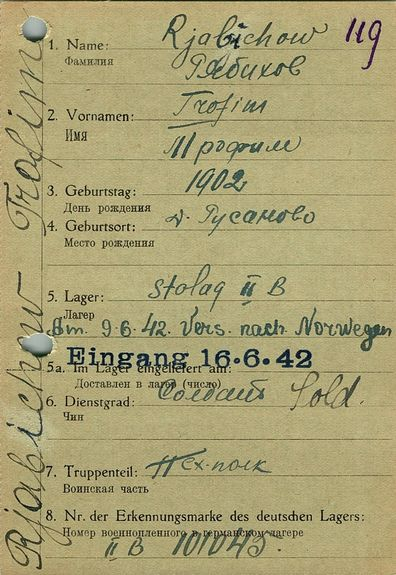 119
1. Name: Rjabichow
Фамилия Рябихов
2. Vornamen: Trofim
Имя Трофим
3. Geburtstag: 1902
День рождения
4. Geburtsort: д. Русаново
Место рождения
5. Lager: Stalag II B
Лагер
Am 9.6.42. Vers. nach Norwegen
Eingang 16.6.42
5a. Im Lager eingeliefert am:
Доставлен в лагер (число)
6. Dienstgrad: Солдат Sold.
Чин
7. Truppenteil: Пех-полк
Воинская часть
8. Nr. der Erkennungsmarke des deutschen Lagers:
Номер военнопленного в германском лагере
II B 101045.
Rjabichow Trofim